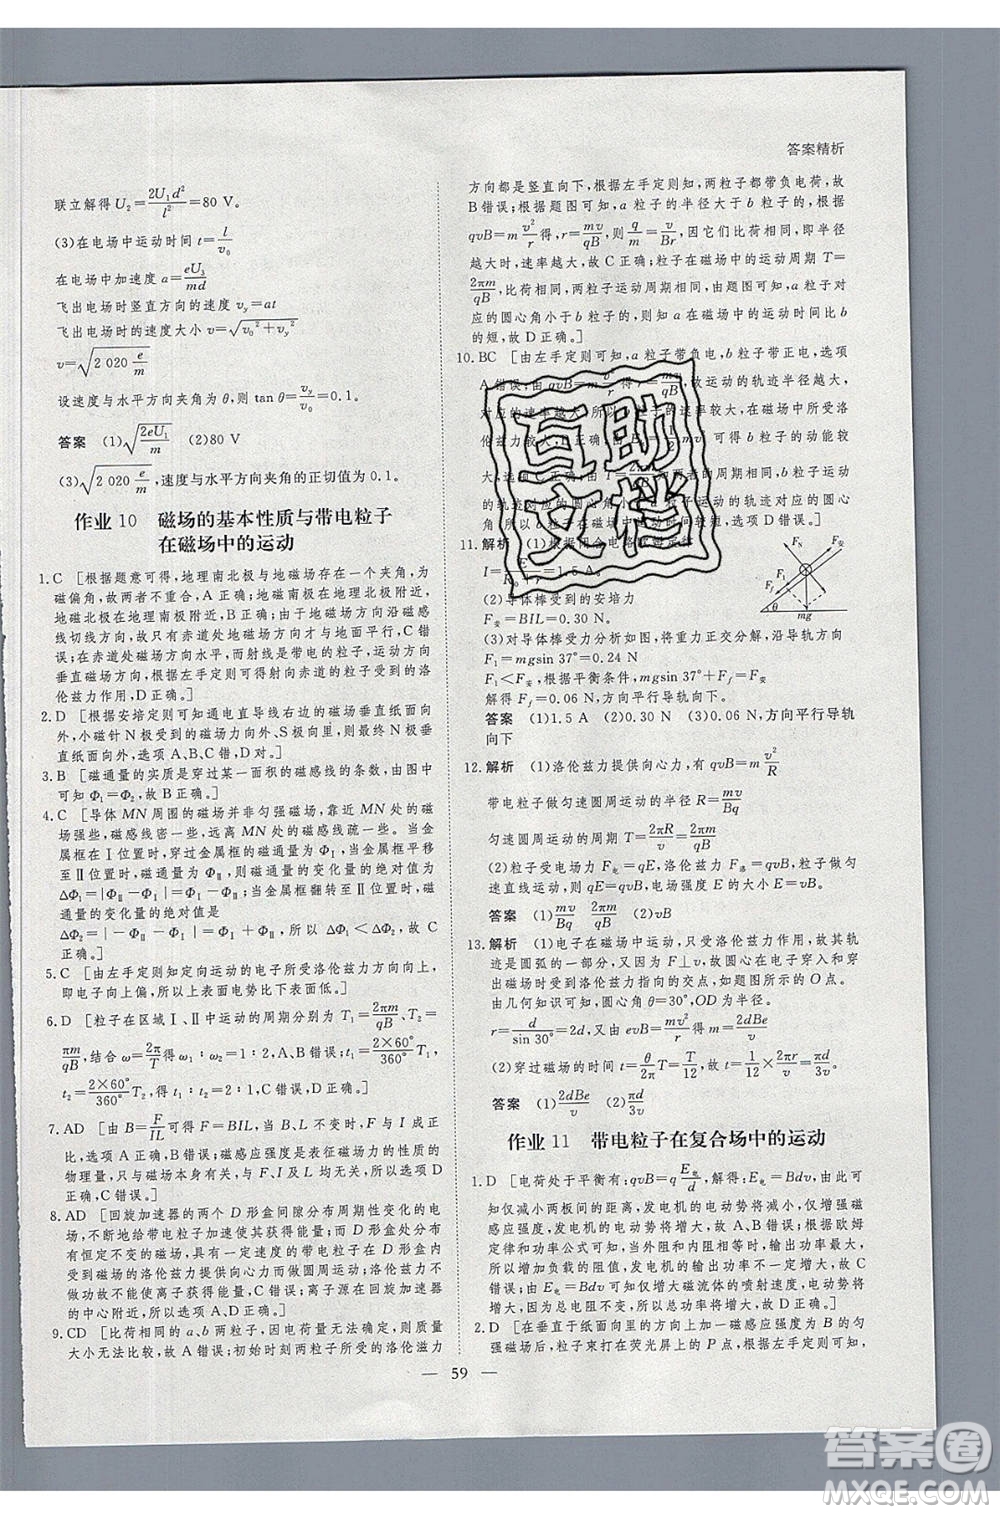 答案精析
联立解得U₂=2U₁d²/l²=80 V。
(3)在电场中运动时间t=l/v₀
在电场中加速度a=eU₃/md
飞出电场时竖直方向的速度v_y=at
飞出电场时的速度大小v=√(v₀²+v_y²)
v=√(2 020 e/m)
设速度与水平方向夹角为θ,则tan θ=v_y/v₀=0.1。
答案 (1)√(2eU₁/m) (2)80 V
(3)√(2 020 e/m),速度与水平方向夹角的正切值为0.1。
作业10 磁场的基本性质与带电粒子
在磁场中的运动
1.C [根据题意可得,地理南北极与地磁场存在一个夹角,为
磁偏角,故两者不重合,A正确;地磁南极在地理北极附近,
地磁北极在地理南极附近,B正确;由于地磁场磁感线沿
切线方向,故只有赤道处地磁场方向才与地面平行,C错
误;在赤道处磁场方向水平,而射线是带电的粒子,运动方向
垂直磁场方向,根据左手定则可得射向赤道的粒子受到的洛
伦兹力作用,D正确。]
2.D [根据安培定则可知通电直导线右边的磁场垂直纸面向外,
小磁针N极受到的磁场力向外,S极向里,故从上向下看逆时针
转动,所以选项A、B、C错,D对。]
3.B [磁通量的实质是穿过某一面积的磁感线的条数,由图中
可知,Φ₁=Φ₂,故选项B正确。]
4.C [导体MN周围的磁场并非匀强磁场,靠近MN处的磁
场强些,磁感线密一些,远离MN处的磁感线疏一些,当金
属框在Ⅰ位置时,穿过金属框的磁通量为ΦⅠ,当金属框平移
至Ⅱ位置时,磁通量为ΦⅡ,则磁通量的变化量的绝对值为
ΔΦ₁=|ΦⅡ-ΦⅠ|=ΦⅠ-ΦⅡ。当金属框翻转到Ⅱ位置时,磁
通量的变化量的绝对值是
ΔΦ₂=|-ΦⅡ-ΦⅠ|=ΦⅠ+ΦⅡ,所以ΔΦ₁<ΔΦ₂,故C正确。]
5.C [由左手定则知定向运动的电子所受洛伦兹力方向向上,
即电子向上偏,所以上表面电势比下表面低。]
6.D [粒子在区域Ⅰ、Ⅱ中运动的周期分别为T₁=2πm/qB、T₂=
πm/qB,结合ω=2π/T可得ω₁∶ω₂=1∶2,A错误;t₁=2×60°/360° T₁,
t₂=2×60°/360° T₂,得t₁∶t₂=2∶1,B、C错误,D正确。]
7.AD [由B=F/IL可得F=BIL,即磁感应强度B与F成正
比,与IL成反比,B错误。磁感应强度是表征磁场强弱的
物理量,是磁场本身的性质,与F、I、L无关,C错误,A、D
正确。]
8.AD [回旋加速器的两个D形盒间隙分布周期性变化的电
场,不断地给带电粒子加速使其获得能量;而D形盒处分布
有恒定不变的磁场,具有一定速度的带电粒子在D形盒内
受到磁场的洛伦兹力提供的向心力而做圆周运动;洛伦兹力
不做功故不能使离子获得能量,C错误;离子源在回旋加速器
的中心附近,所以选项A、D正确。]
9.CD [比荷相同的a、b两粒子,因电荷量无法确定,所以质
量大小无法比较,故A错误;初始时刻两粒子的洛伦兹力
方向都是竖直向下,根据左手定则知,两粒子都带负电荷,故
B错误;根据题图可知,a粒子的半径大于b粒子,根据
qvB=m v²/r得,r=mv/qB,则q/m=v/Br,因它们比荷相同,即半径
越大时,速率越大,故C正确;根据粒子在磁场中运动周期T=
2πm/qB,比荷相同,两粒子周期相同,由题图可知,a粒子对应
的圆心角小于b粒子,故a粒子在磁场中运动的时间比b
的短,故D正确。]
10.BC [由左手定则可知,a粒子带负电,b粒子带正电,故
A错误;由qvB=m v²/r得r=mv/qB,故运动的轨迹半径越大,
对应的速率越大,所以b粒子的速率较大,在磁场中所受洛
伦兹力较大,B正确;由Ek=½mv²可得b粒子的动能较大,
C正确;由T=2πm/qB知两者的周期相同,b粒子
的轨迹对应的圆心角小于a粒子运动的轨迹对应的圆心
角,所以b粒子在磁场中运动时间较短,D错误。]
11.解析 (1)根据闭合电路欧姆定律
I=E/(R₀+r)=1.5 A。
(2)导体棒受到的安培力
F安=BIL=0.30 N。
(3)对导体棒受力分析如图,将重力正交分解,沿导轨方向
F₁=mgsin 37°=0.24 N
F₁<F安,根据平衡条件,mgsin 37°+F_f=F安
解得F_f=0.06 N,方向平行导轨向下。
答案 (1)1.5 A (2)0.30 N (3)0.06 N,方向平行导轨
向下
F_N
F安
F₁
F_f
θ
mg
12.解析 (1)洛伦兹力提供向心力,有qvB=m v²/R
带电粒子做匀速圆周运动的半径R=mv/Bq
匀速圆周运动的周期T=2πR/v=2πm/qB。
(2)粒子受电场力F电=qE,洛伦兹力F洛=qvB,粒子做匀
速直线运动,则qE=qvB,电场强度E的大小E=vB。
答案 (1)mv/Bq 2πm/qB (2)vB
13.解析 (1)电子在磁场中运动,只受洛伦兹力作用,故其轨
迹是圆弧的一部分,又因为F⊥v,故圆心在电子穿入和穿
出磁场时受到洛伦兹力指向的交点,如题图所示的O点。
由几何知识可知,圆心角θ=30°,OD为半径。
r=d/sin 30°=2d,又由evB=mv²/r得m=2dBe/v。
(2)穿过磁场的时间t=θ/2π T=T/12,故t=1/12×2πr/v=πd/3v。
答案 (1)2dBe/v (2)πd/3v
作业11 带电粒子在复合场中的运动
1.D [电荷处于平衡有:qvB=q E电/d,解得:E电=Bdv,可知,
仅减小两板间的距离,发电机的电动势将减小,仅增强磁
感应强度,发电机的电动势将增大,故A、B错误;根据欧姆
定律和功率公式,只有当外电阻和内阻相等时,输出功率最
大,仅增加负载的阻值,发电机的输出功率不一定增大,故C
错误;由E电=Bdv可知仅增大磁流体的喷射速度,电动势
增大,总电阻不变,发电机总功率将增大,故D正确。]
2.D [在垂直于纸面向里的磁场中运动时,根据左手定则,粒
子受力向上,粒子打在荧光屏上的P点,根据选项图可知,
— 59 —
互助文档
答案圈
MXQE.COM